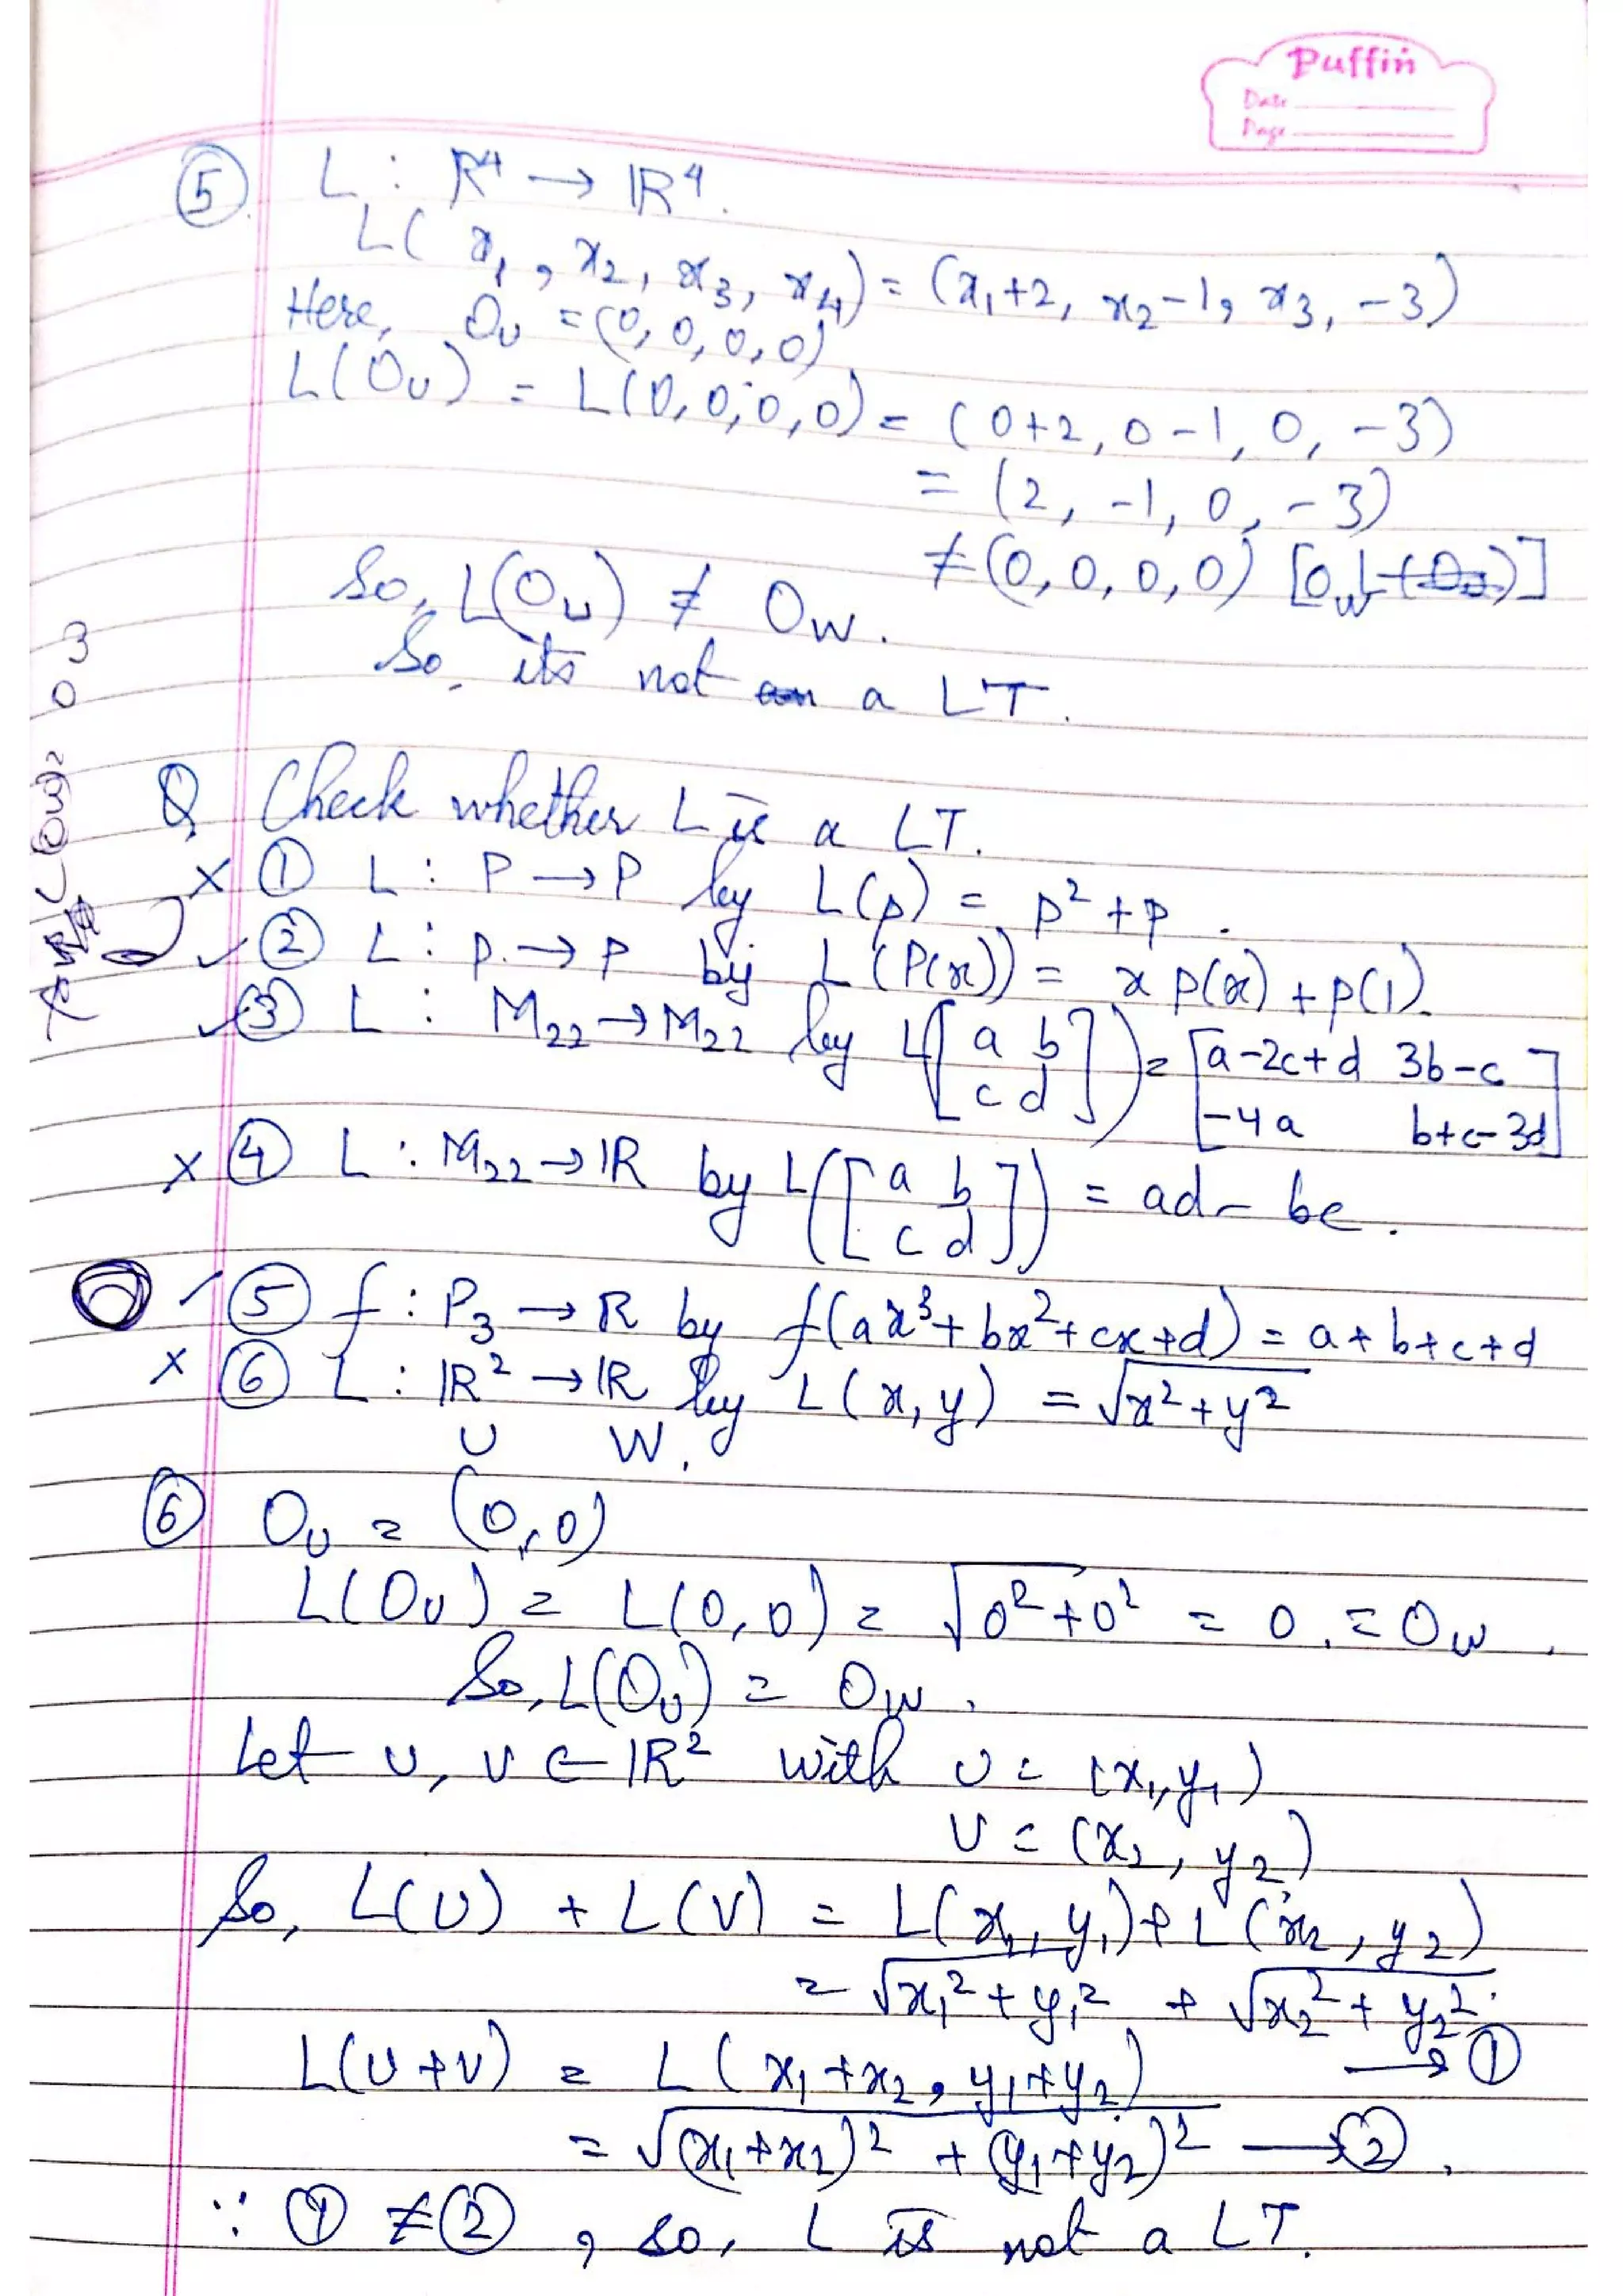 Puffin
Date
Page
⑤ L : R⁴ → IR⁴.
L( x₁, x₂, x₃, x₄) = (x₁+2, x₂-1, x₃, -3)
Here, 0ᵤ = (0, 0, 0, 0)
L(0ᵤ) = L(0, 0, 0, 0) = (0+2, 0-1, 0, -3)
= (2, -1, 0, -3)
≠ (0, 0, 0, 0) [0w]
So, L(0ᵤ) ≠ 0w.
So, its not a LT.
Q Check whether L is a LT.
× ① L : P → P by L(p) = p² + p.
✓ ② L : P → P by L(P(x)) = x p(x) + p(1).
✓ ③ L : M₂₂ → M₂₂ by L([a b c d]) = [a-2c+d 3b-c -4a b+c-3d]
× ④ L : M₂₂ → IR by L([a b c d]) = ad - bc.
✓ ⑤ f : P₃ → R by f(ax³ + bx² + cx + d) = a + b + c + d
× ⑥ L : IR² → IR by L(x, y) = √x² + y²
U W.
⑥ 0ᵤ = (0, 0)
L(0ᵤ) = L(0, 0) = √0² + 0² = 0. = 0w.
So, L(0ᵤ) = 0w.
Let u, v ∈ IR² with u = (x₁, y₁)
v = (x₂, y₂)
So, L(u) + L(v) = L(x₁, y₁) + L(x₂, y₂)
= √x₁² + y₁² + √x₂² + y₂².
→ ①
L(u + v) = L(x₁ + x₂, y₁ + y₂)
= √(x₁ + x₂)² + (y₁ + y₂)² → ②.
∵ ① ≠ ②, so, L is not a LT.